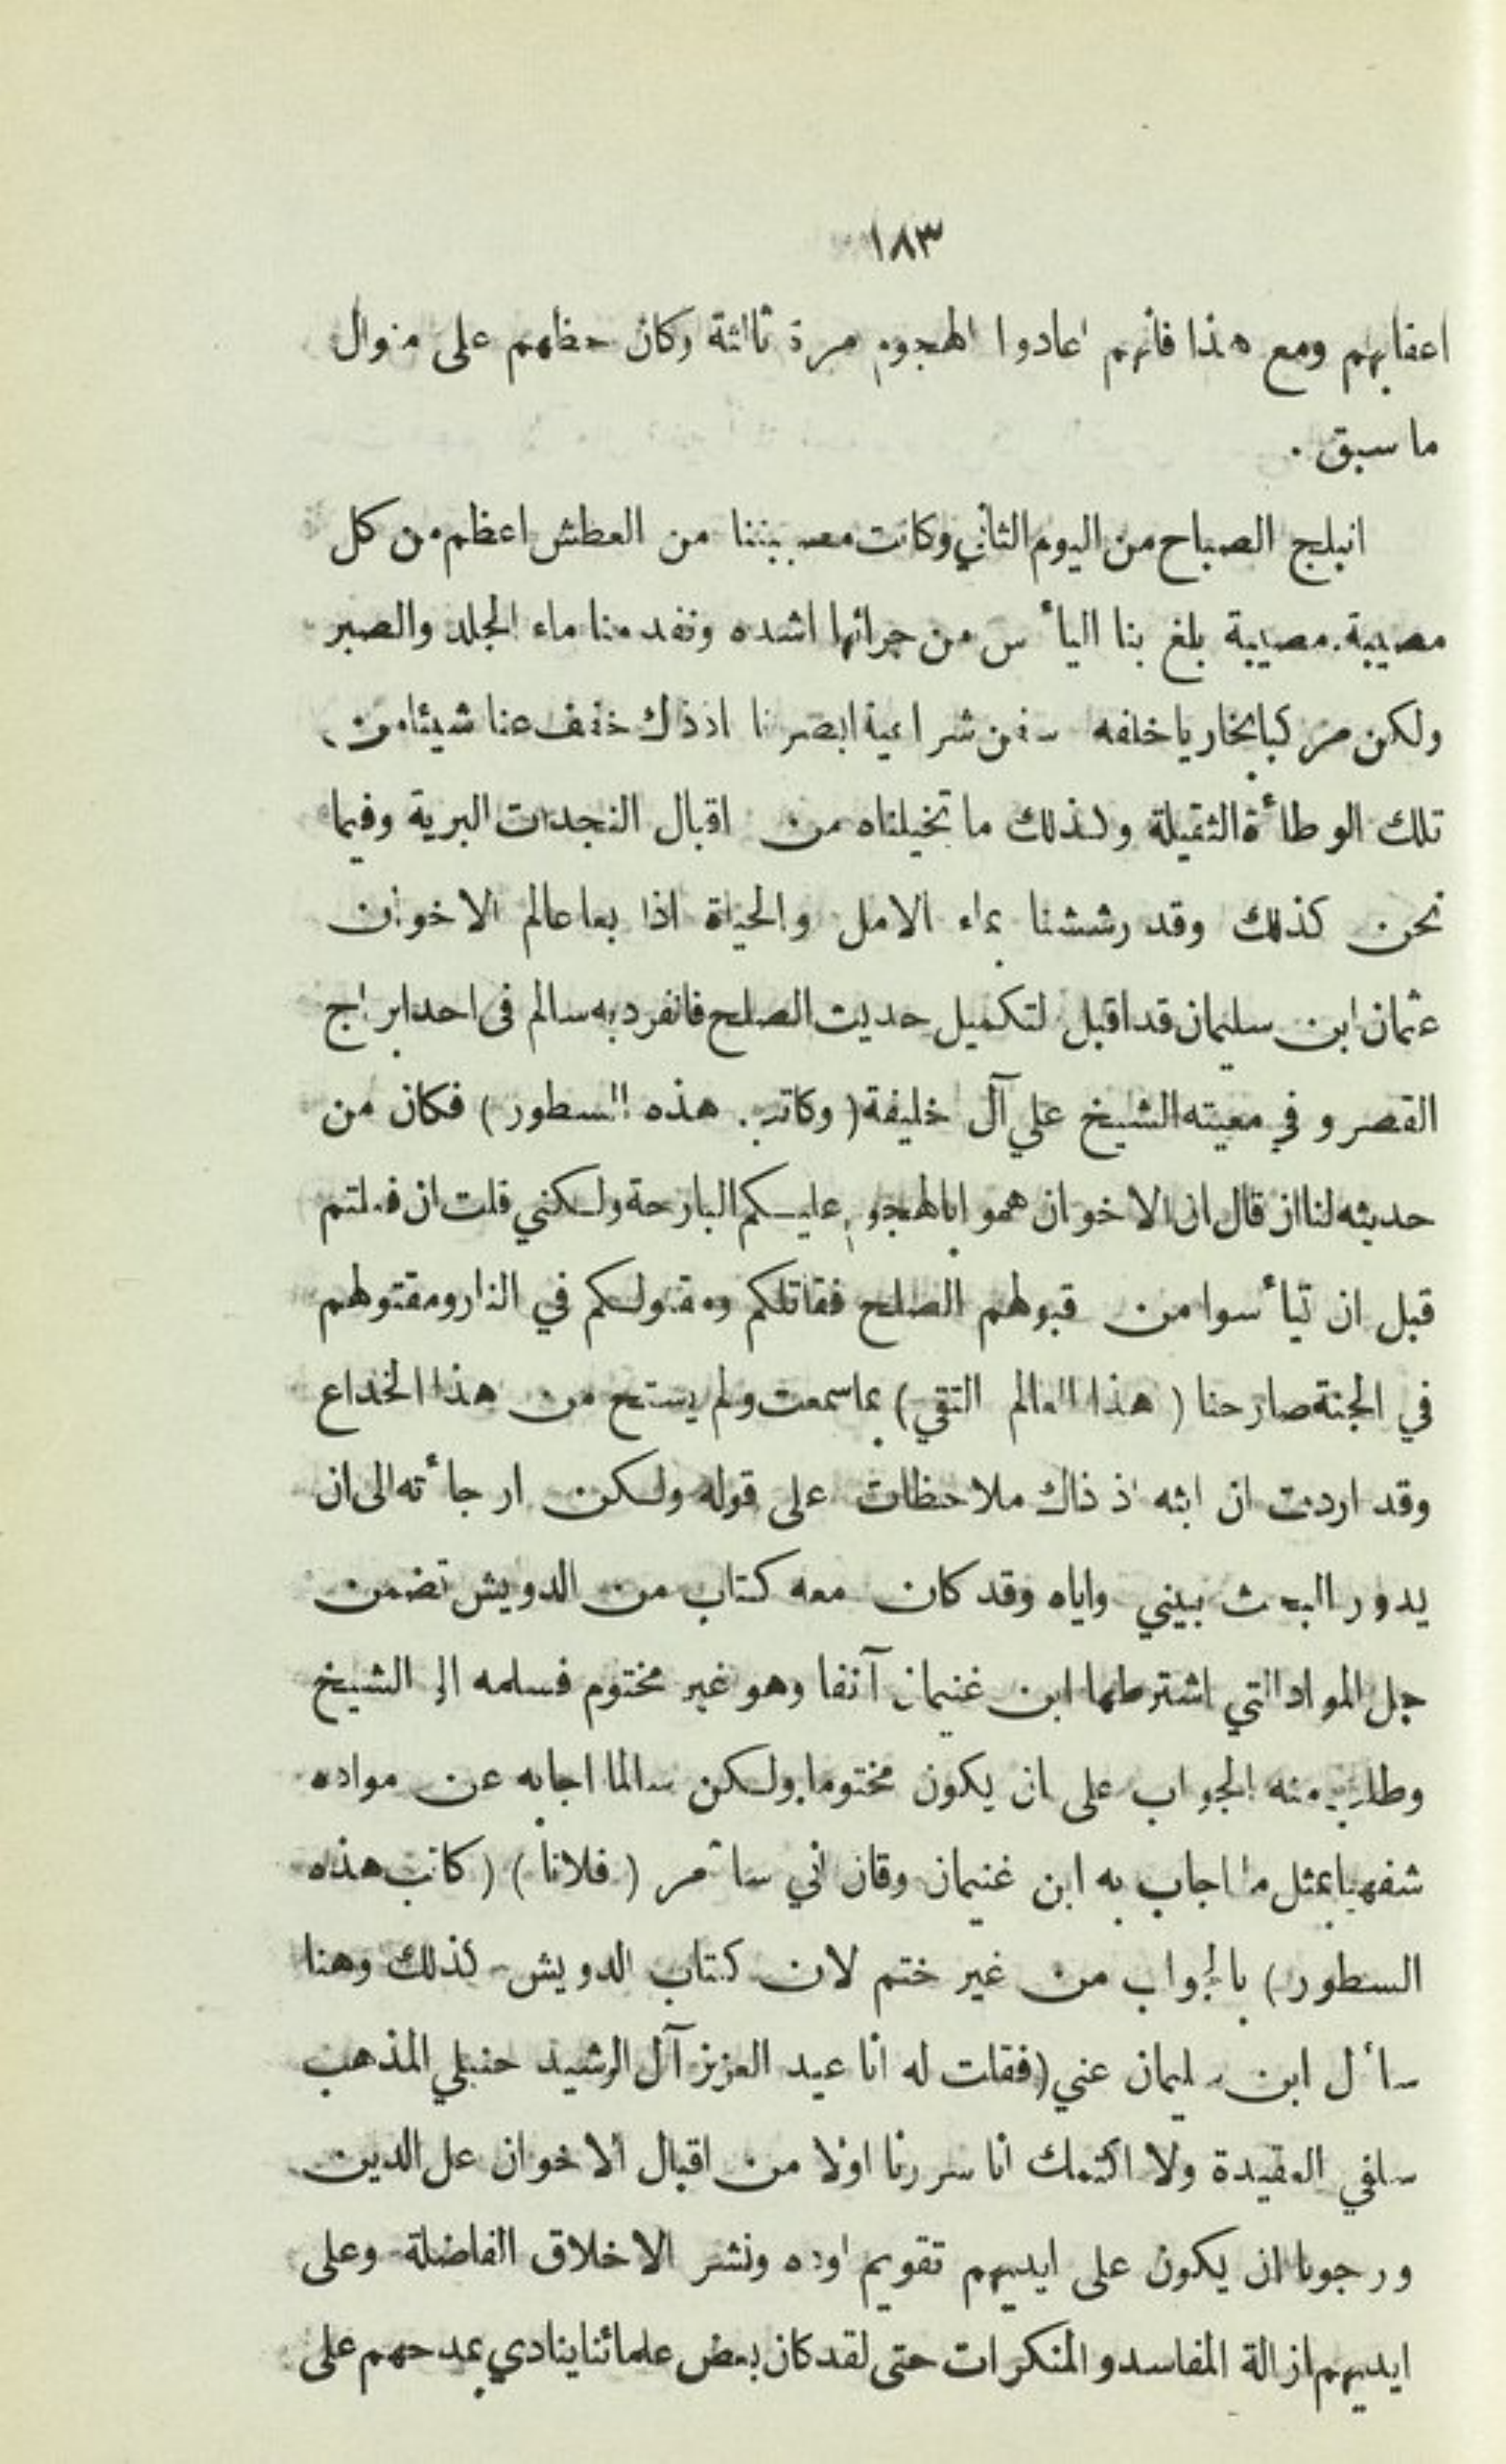 ١٨٣
اعقابهم ومع هذا فانهم اعادوا الهجوم مرة ثالثة وكان حظهم على منوال
ما سبق .
انبلج الصباح من اليوم الثاني وكانت مصيبتنا من العطش اعظم من كل
مصيبة. مصيبة بلغ بنا اليأس من جرائها اشده ونفد منا ماء الجلد والصبر
ولكن مركبا بخاريا خلفه سفن شراعية ابصرنا اذ ذاك خفف عنا شيئا من
تلك الوطأة الثقيلة ولذلك ما تخيلناه من اقبال النجدات البرية وفيما
نحن كذلك وقد رششنا بماء الامل والحياة اذا بعا عالم الاخوان
عثمان ابن سليمان قد اقبل لتكميل حديث الصلح فانفرد به سالم فى احد ابراج
القصر و في معيته الشيخ علي آل خليفة ( وكاتب هذه السطور ) فكان من
حديثه لنا ان قال ان الاخوان هموا بالهجوم عليكم البارحة ولكني قلت ان فعلتم
قبل ان تيأسوا من قبولهم الصلح فقاتلكم ومقتولكم في النار ومقتولهم
في الجنة صارحنا ( هذا العالم التقي ) بما سمعت ولم يستح من هذا الخداع
وقد اردت ان ابثه اذ ذاك ملاحظات على قوله ولكن ارجأته الى ان
يدور البحث بيني واياه وقد كان معه كتاب من الدويش تضمن
جل المواد التي اشترطها ابن غنيمان آنفا وهو غير مختوم فسلمه الى الشيخ
وطلب منه الجواب على ان يكون مختوما ولكن سالما اجابه عن مواده
شفهيا بمثل ما اجاب به ابن غنيمان وقال اني سآمر ( فلانا ) ( كاتب هذه
السطور ) بالجواب من غير ختم لان كتاب الدويش كذلك وهنا
سأل ابن سليمان عني ( فقلت له انا عبد العزيز آل الرشيد حنبلي المذهب
سلفي العقيدة ولا اكتمك انا سررنا اولا من اقبال الاخوان على الدين
ورجونا ان يكون على ايديهم تقويم اوده ونشر الاخلاق الفاضلة وعلى
ايديهم ازالة المفاسد والمنكرات حتى لقد كان بعض علمائنا ينادي بمدحهم على